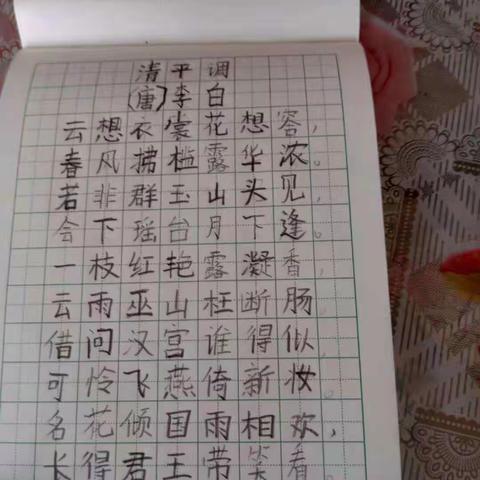 清平调
(唐)李白
云想衣裳花想容,
春风拂槛露华浓。
若非群玉山头见,
会下瑶台月下逢。
一枝红艳露凝香,
云雨巫山枉断肠。
借问汉宫谁得似,
可怜飞燕倚新妆。
名花倾国雨相欢,
长得君王带笑看。